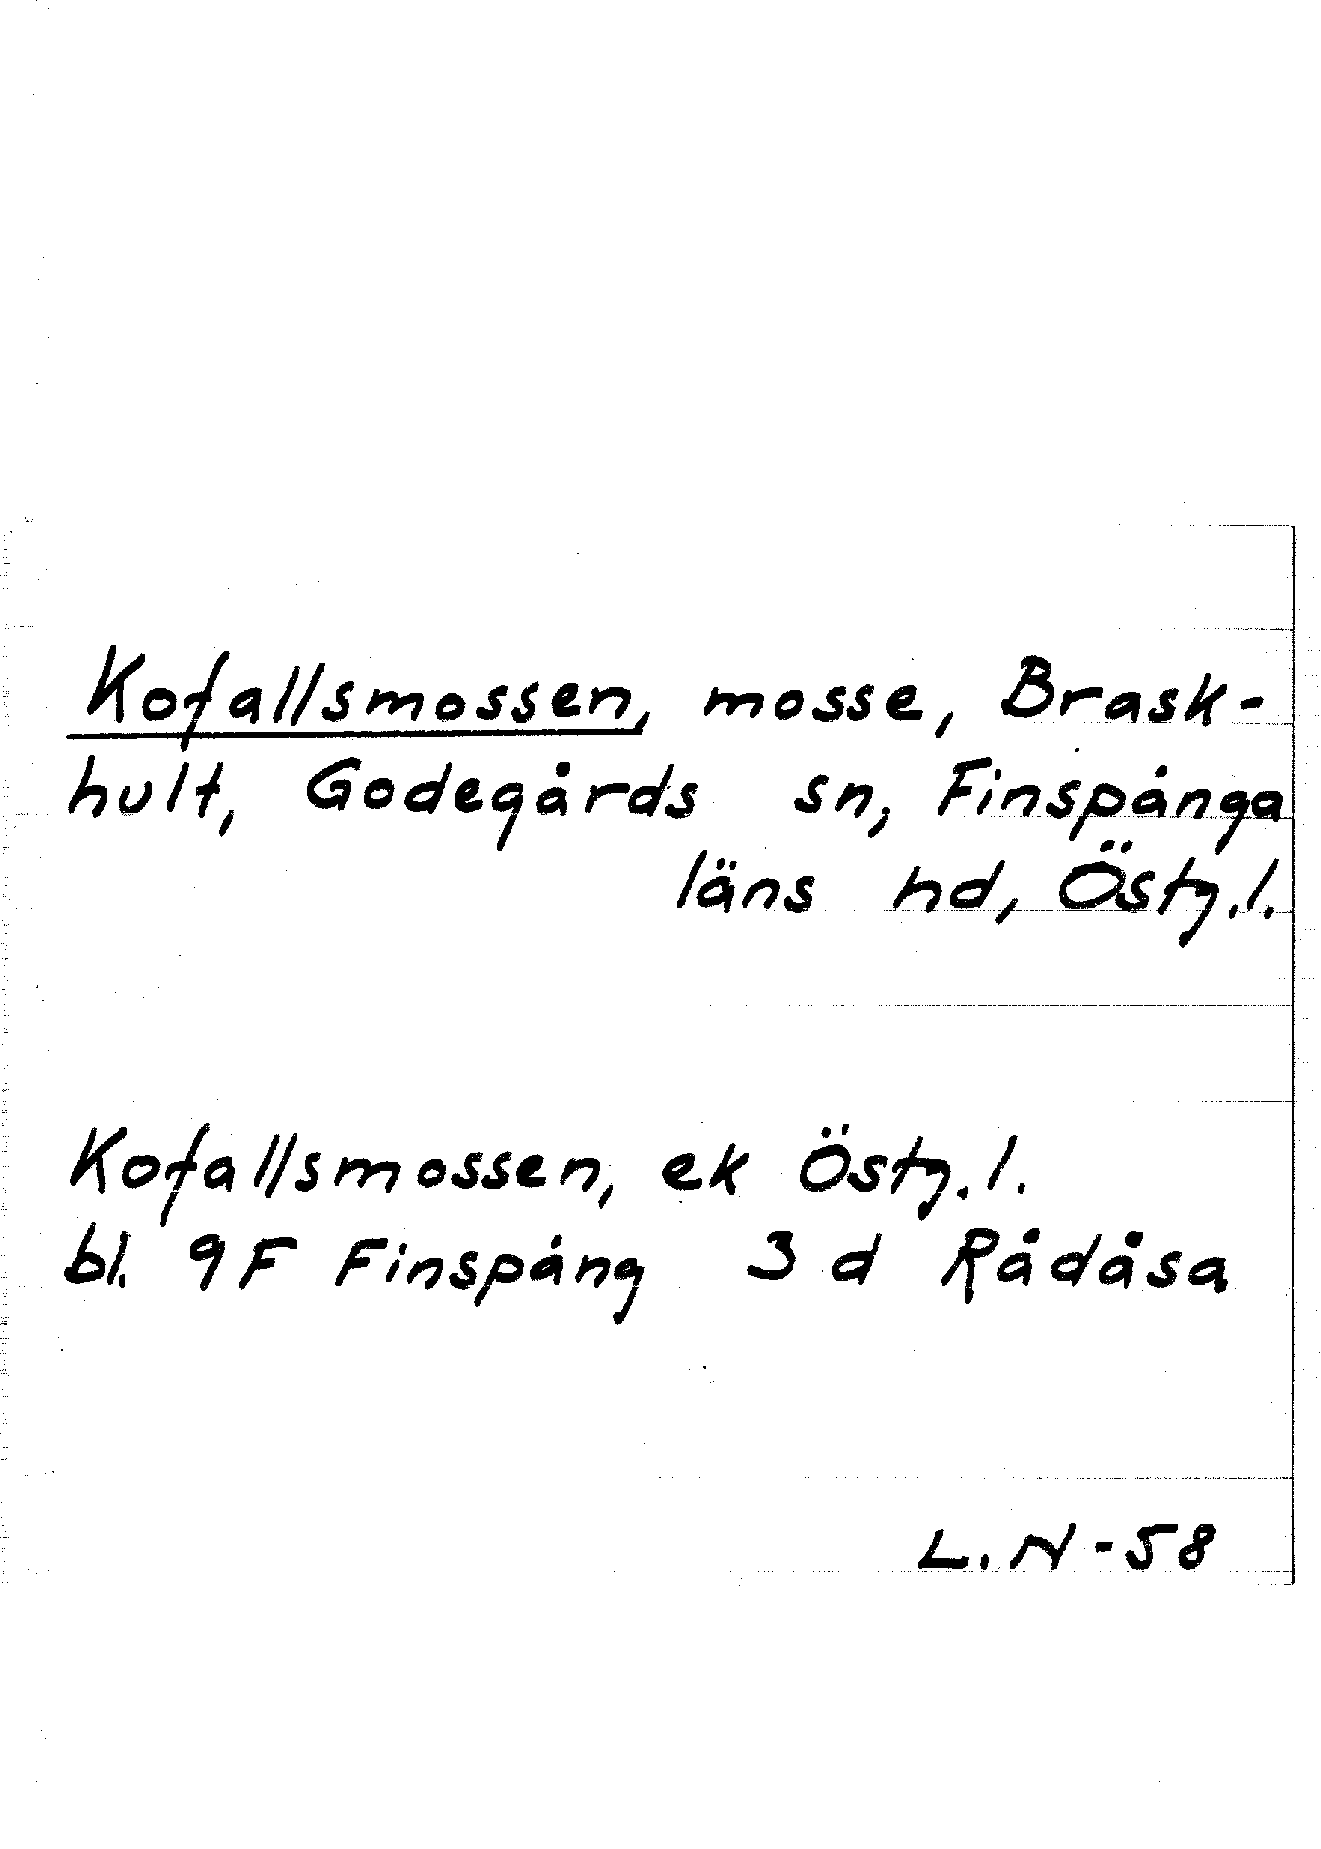 Kofallsmossen, mosse, Brask-
hult, Godegårds sn, Finspånga
läns hd, Östg.l.
Kofallsmossen, ek Östg.l.
bl. 9F Finspång 3 d Rådåsa
L.N -58